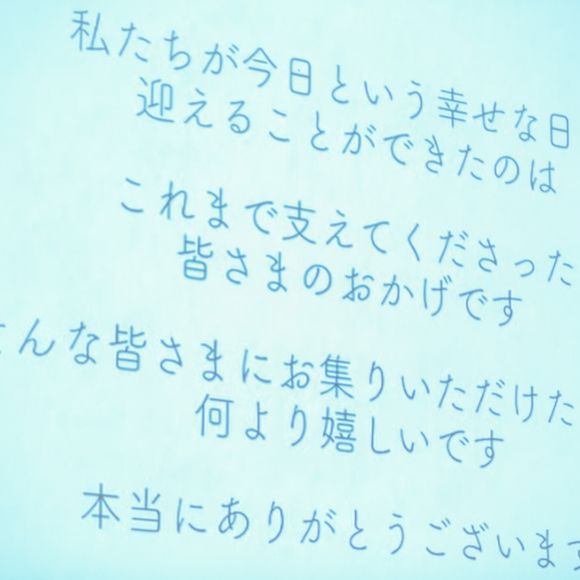 私たちが今日という幸せな日
迎えることができたのは
これまで支えてくださった
皆さまのおかげです
んな皆さまにお集りいただけた
何より嬉しいです
本当にありがとうございます